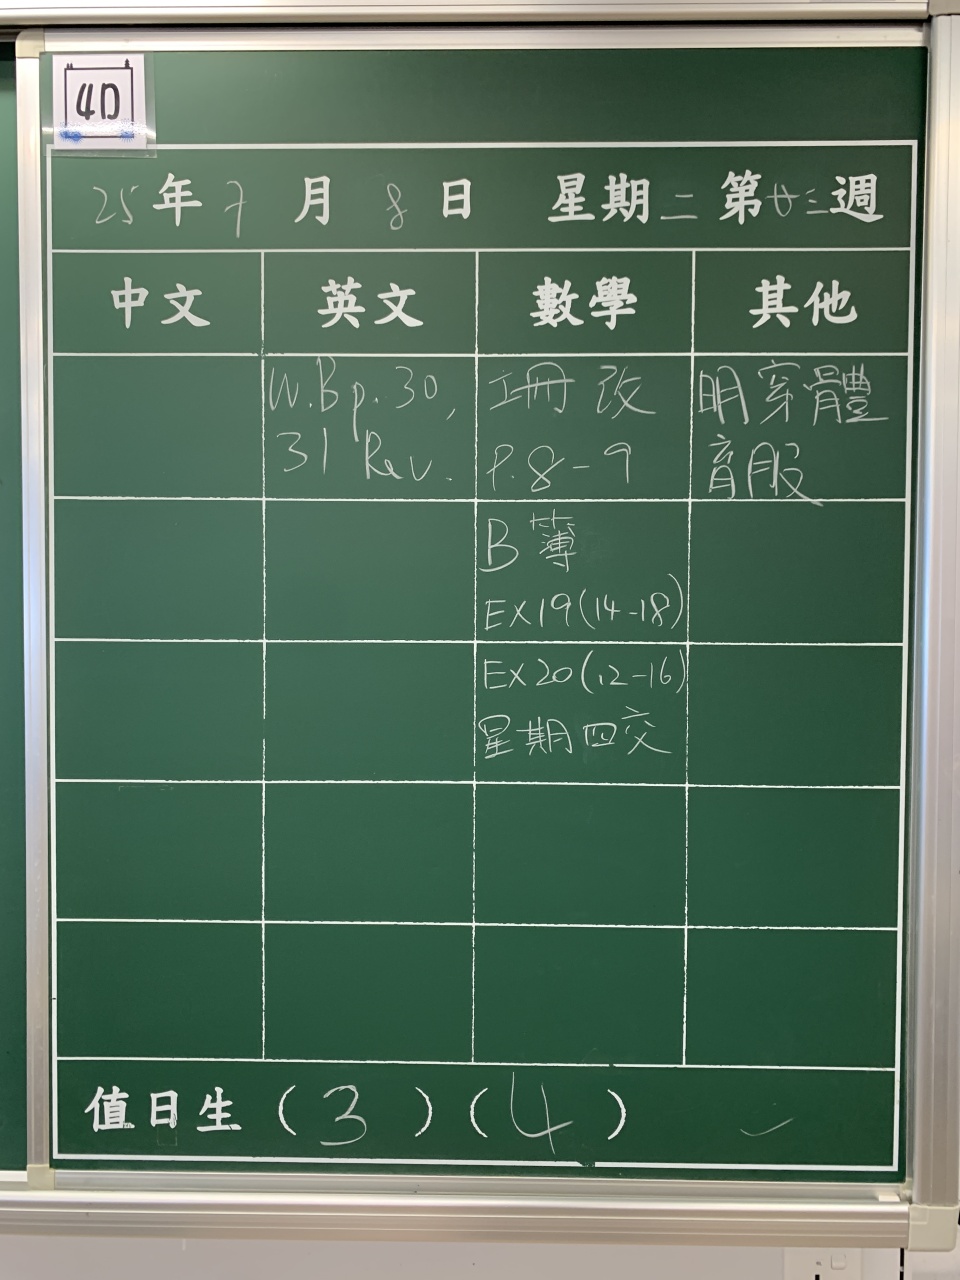 4D
25年7月8日 星期二第廿三週
中文 英文 數學 其他
W.B p.30,
31 Rev.
冊改
P.8-9
明穿體
育服
B簿
EX19(14-18)
EX20(12-16)
星期四交
值日生(3)(4)